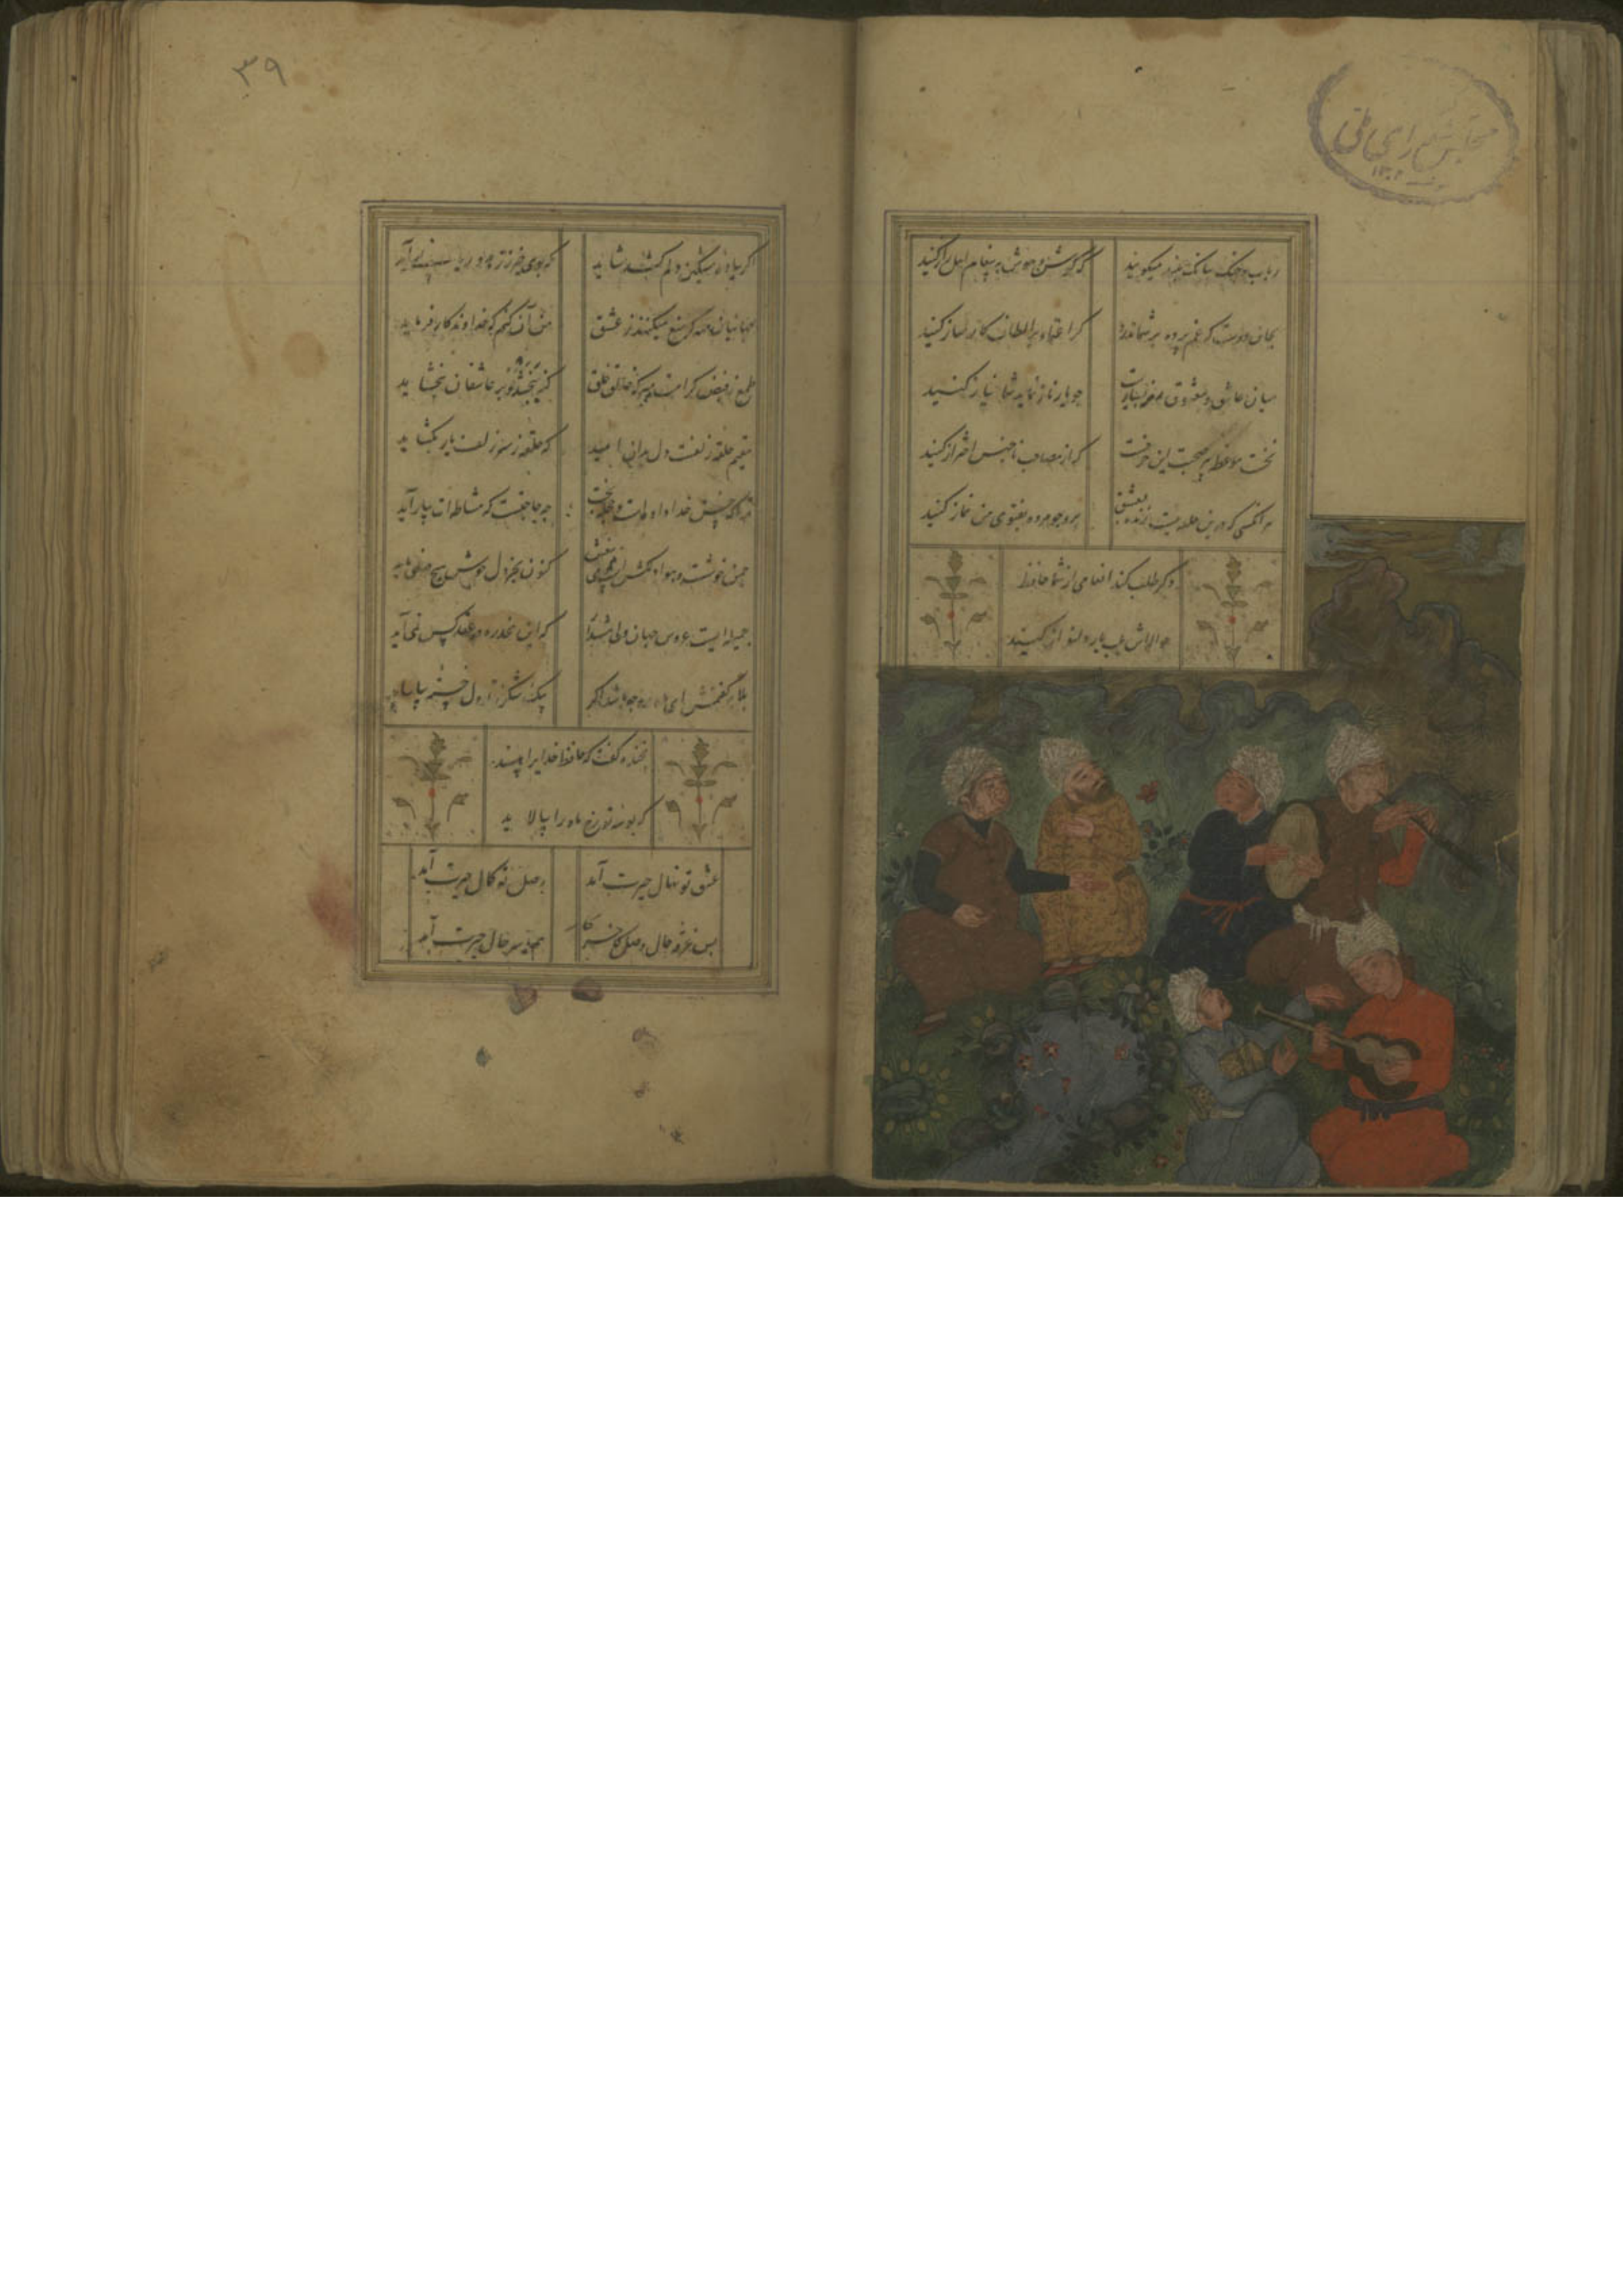 رباب و چنگ ببانگ بلند میکویند
که کوش و هوش به پیغام اهل راز کنید
بجان دوست که غم پرده بر شما ندرد
کر اعتماد بر الطاف کارساز کنید
میان عاشق و معشوق فرق بسیارست
چو یار ناز نماید شما نیاز کنید
نخست موعظه پیر صحبت این حرفست
که از مصاحب ناجنس احتراز کنید
هر آنکسی که درین حلقه نیست زنده بعشق
برو چو مرده بفتوی من نماز کنید
وکر طلب کند انعامی از شما حافظ
حوالتش بلب یار دلنواز کنید
مجلس شورای ملی
۳۹
اکر بباده مشکین دلم کشد شاید
که بوی خیر ز زهد و ریا نمی آید
جهانیان همه کر منع میکنند ز عشق
من آن کنم که خداوند کار فرماید
طمع ز فیض کرامت مبر که خلق
کنه ببخشد و بر عاشقان ببخشاید
مقیم حلقه زلفت دل بدان امید
که حلقه ز سر زلف یار بکشاید
ترا که حسن خداداده هست و حجله بخت
چه حاجتست که مشاطه ات بیاراید
چمن خوشست و هوا دلکشست
کنون بجز دل خوش هیچ در نمی باید
جمیله ایست عروس جهان ولی
که این مخدره در عقد کس نمی آید
بلابه کفتمش ای ماه رخ چه باشد اکر
بیک شکر ز تو دل خسته بیاساید
بخنده کفت که حافظ خدایرا مپسند
که بوسه تو رخ ماه را بیالاید
عشق تو نهال حیرت آمد
وصل تو کمال حیرت آمد
بس غرقه حال وصل کاخر
هم بر سر حال حیرت آمد